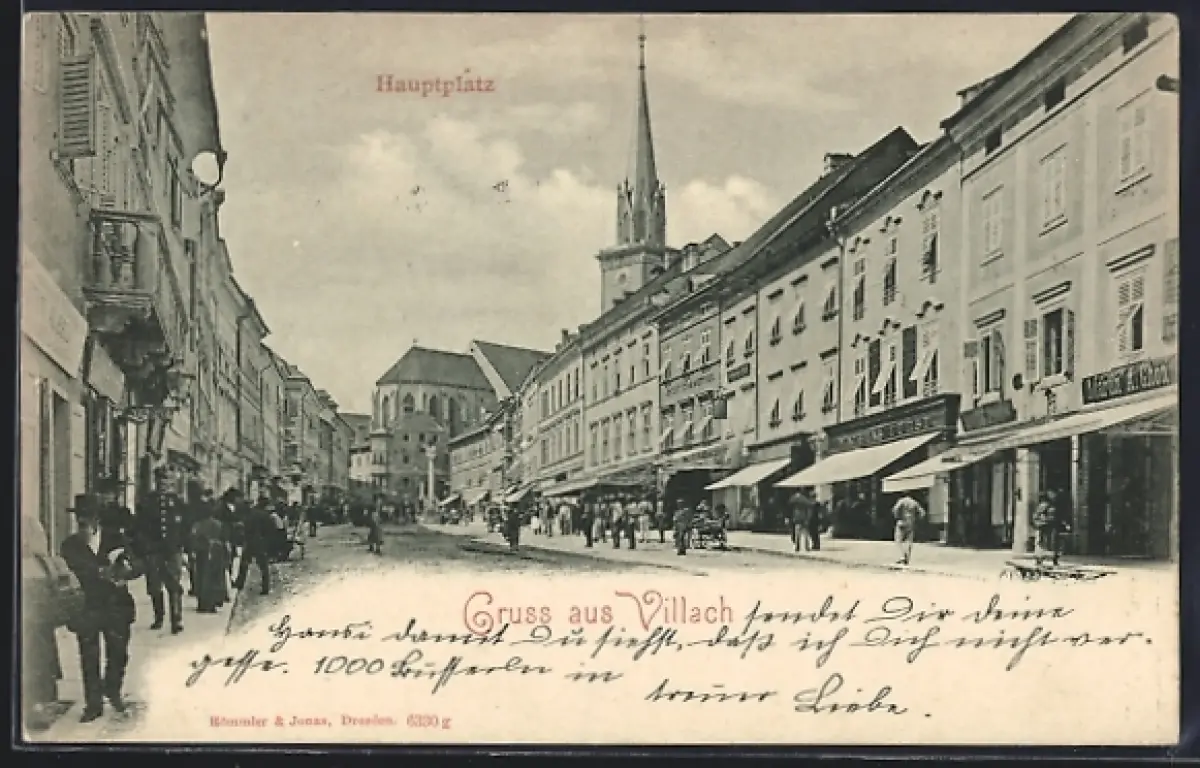 Hauptplatz
Gruss aus Villach sendet Dir deine
Hansi damit Du siehst, daß ich Dich nicht ver-
gesse. 1000 Busserln in
treuer Liebe.
Römmler & Jonas, Dresden. 6330 g